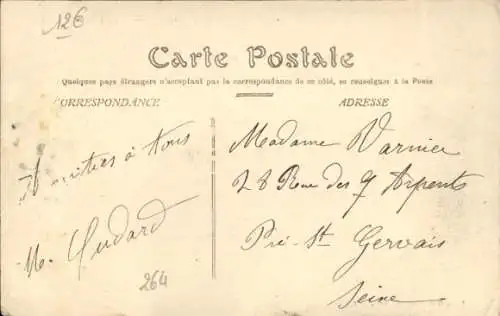 126
Carte Postale
Quelques pays étrangers n'acceptant pas la correspondance de ce côté, se renseigner à la Poste
CORRESPONDANCE
ADRESSE
Amitiés à tous
M. Cudard
264
Madame Varnier
28 Rue des 7 Arpents
Pré-St Gervais
Seine